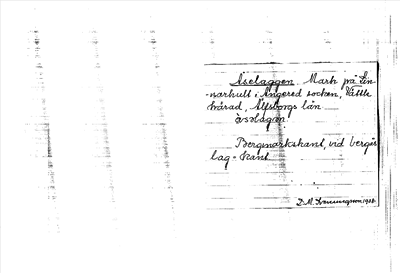 Åselaggen. Mark på Lin-
narhult i Angered socken, Vättle
härad, Älfsborgs län
åsslagan
Bergmarkskant, vid bergs
lag = kant
1928.